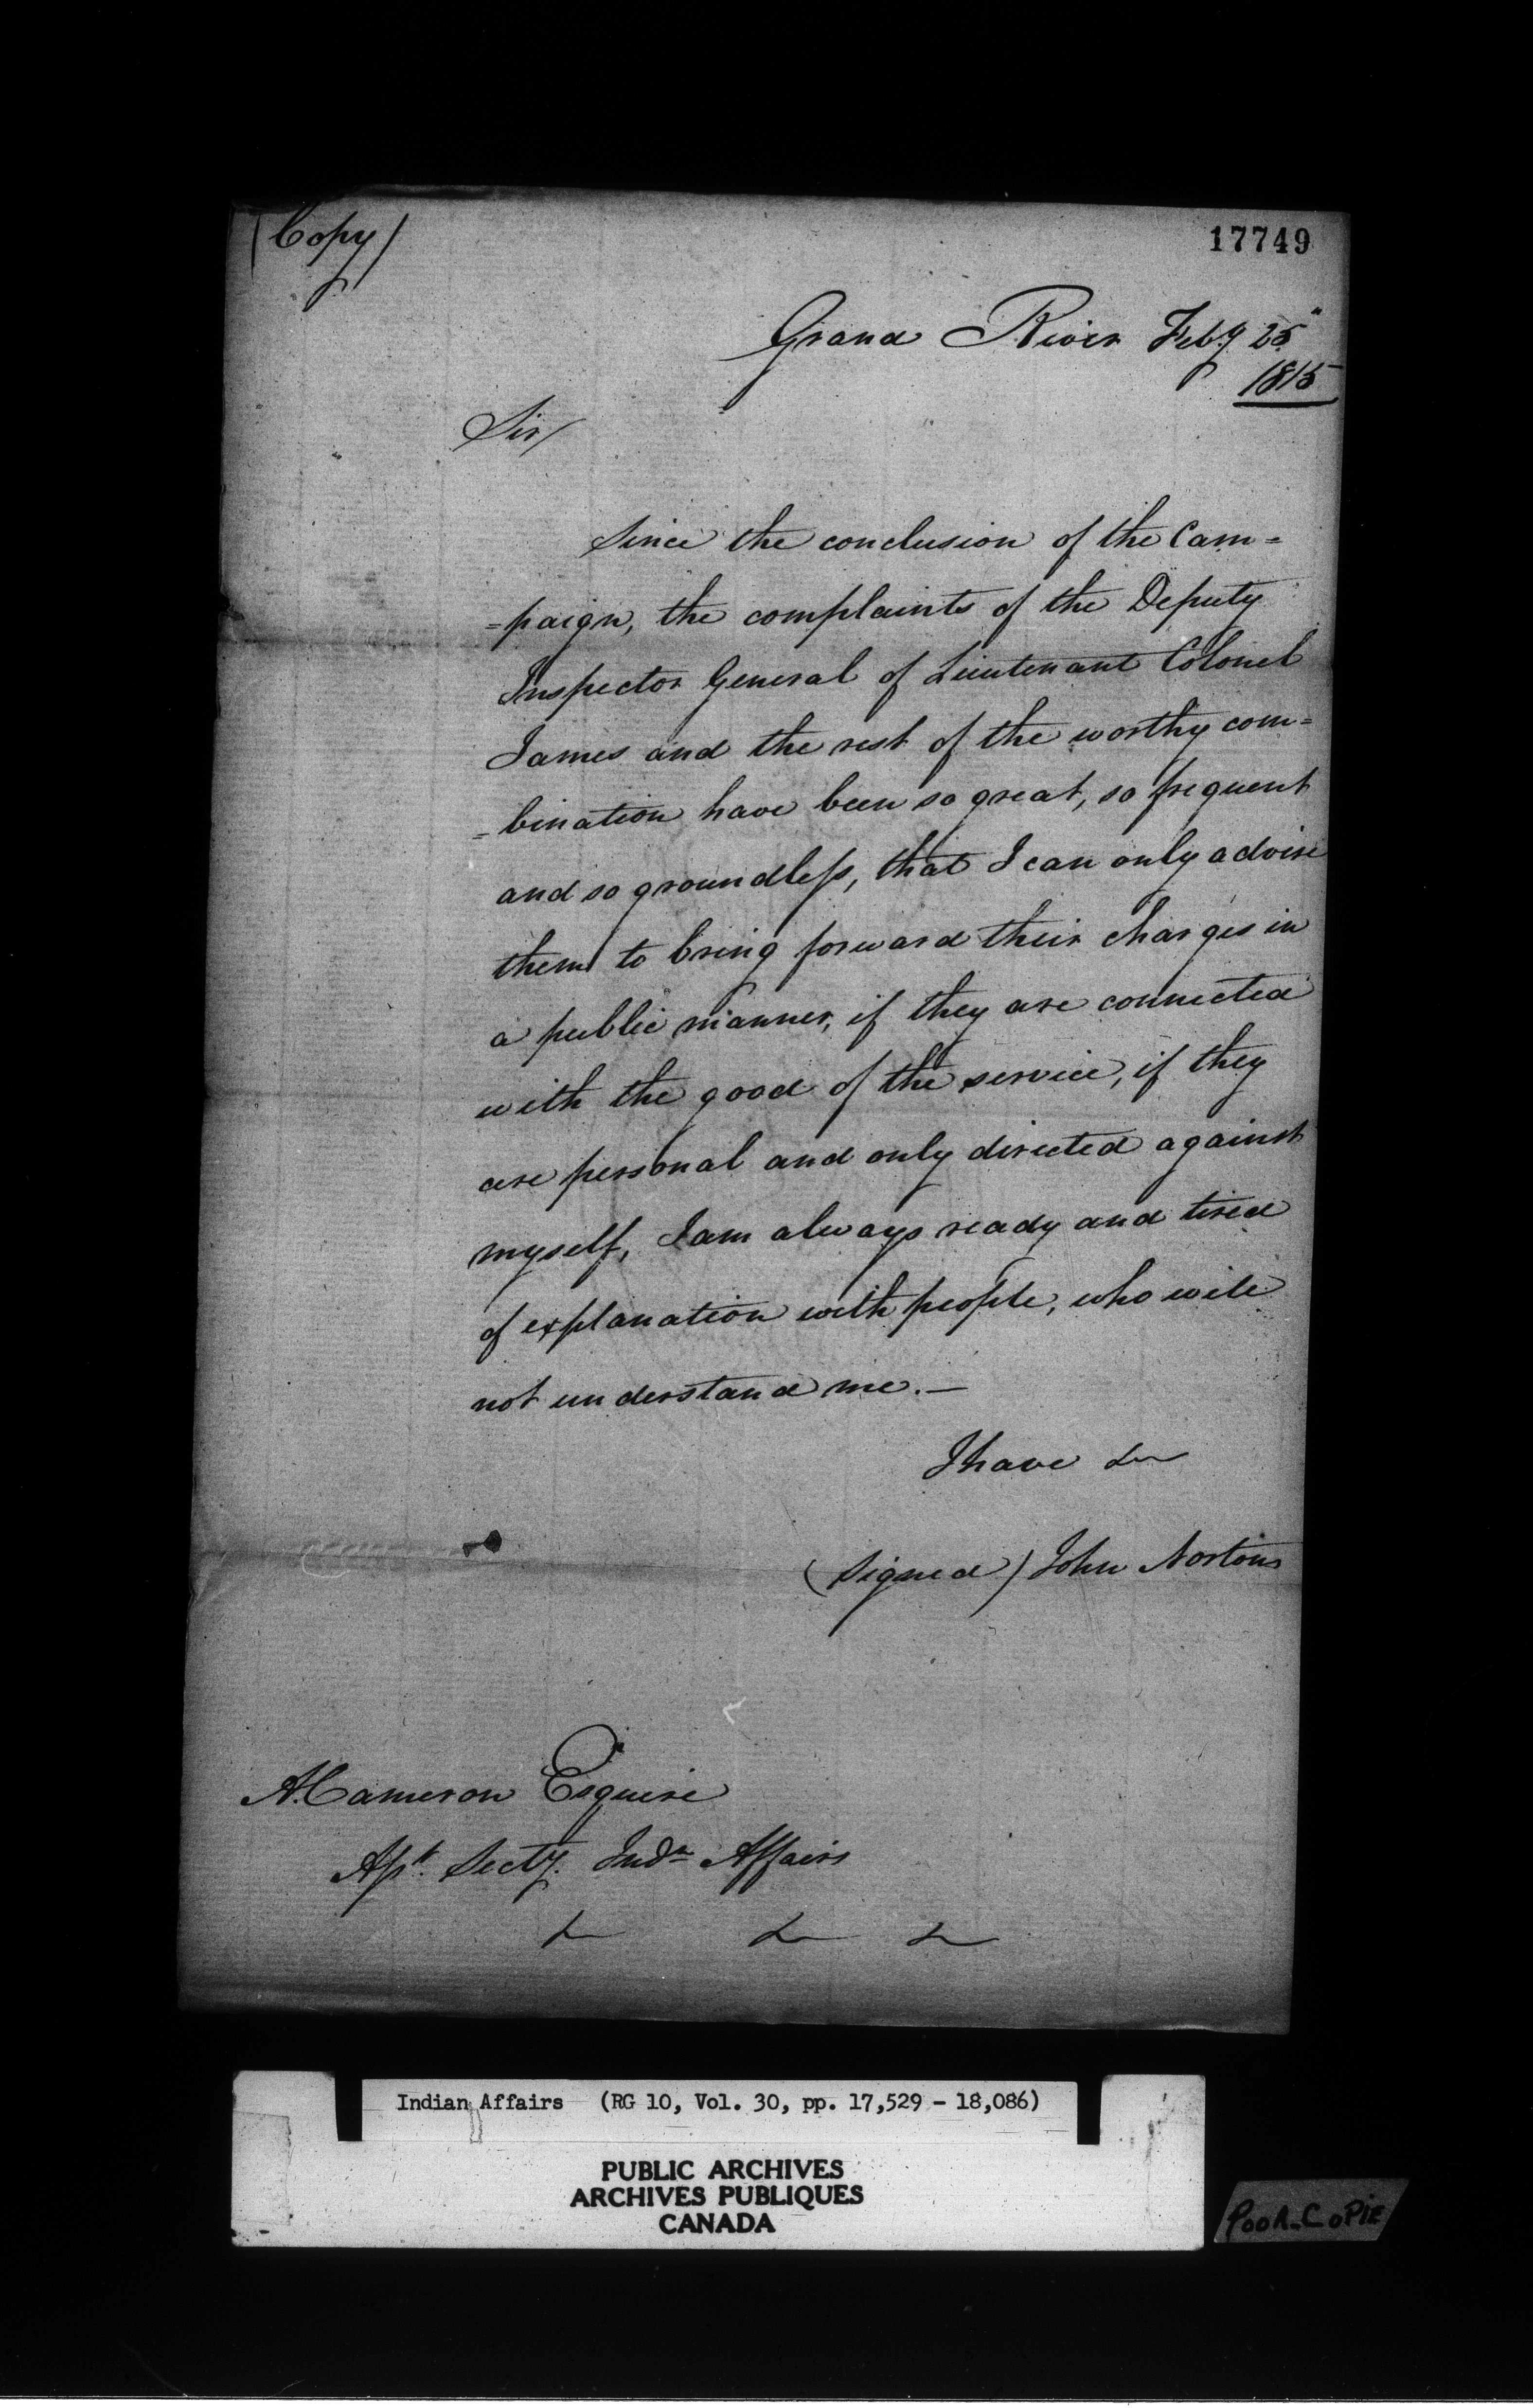 (Copy)
17749
Grand River Feby. 25"
1815
Sir/
Since the conclusion of the Cam=
=paign, the complaints of the Deputy
Inspector General of Lieutenant Colonel
James and the rest of the worthy com=
=bination have been so great, so frequent
and so groundless, that I can only advise
them to bring forward their charges in
a public manner, if they are connected
with the good of the service, if they
are personal and only directed against
myself, I am always ready and tired
of explanation with people, who will
not understand me.—
I have &c
(Signed) John Norton
A. Cameron Esquire
Asst. Secty. Indn Affairs
&c &c &c
Indian Affairs (RG 10, Vol. 30, pp. 17,529 - 18,086)
PUBLIC ARCHIVES
ARCHIVES PUBLIQUES
CANADA
POOR-COPIE